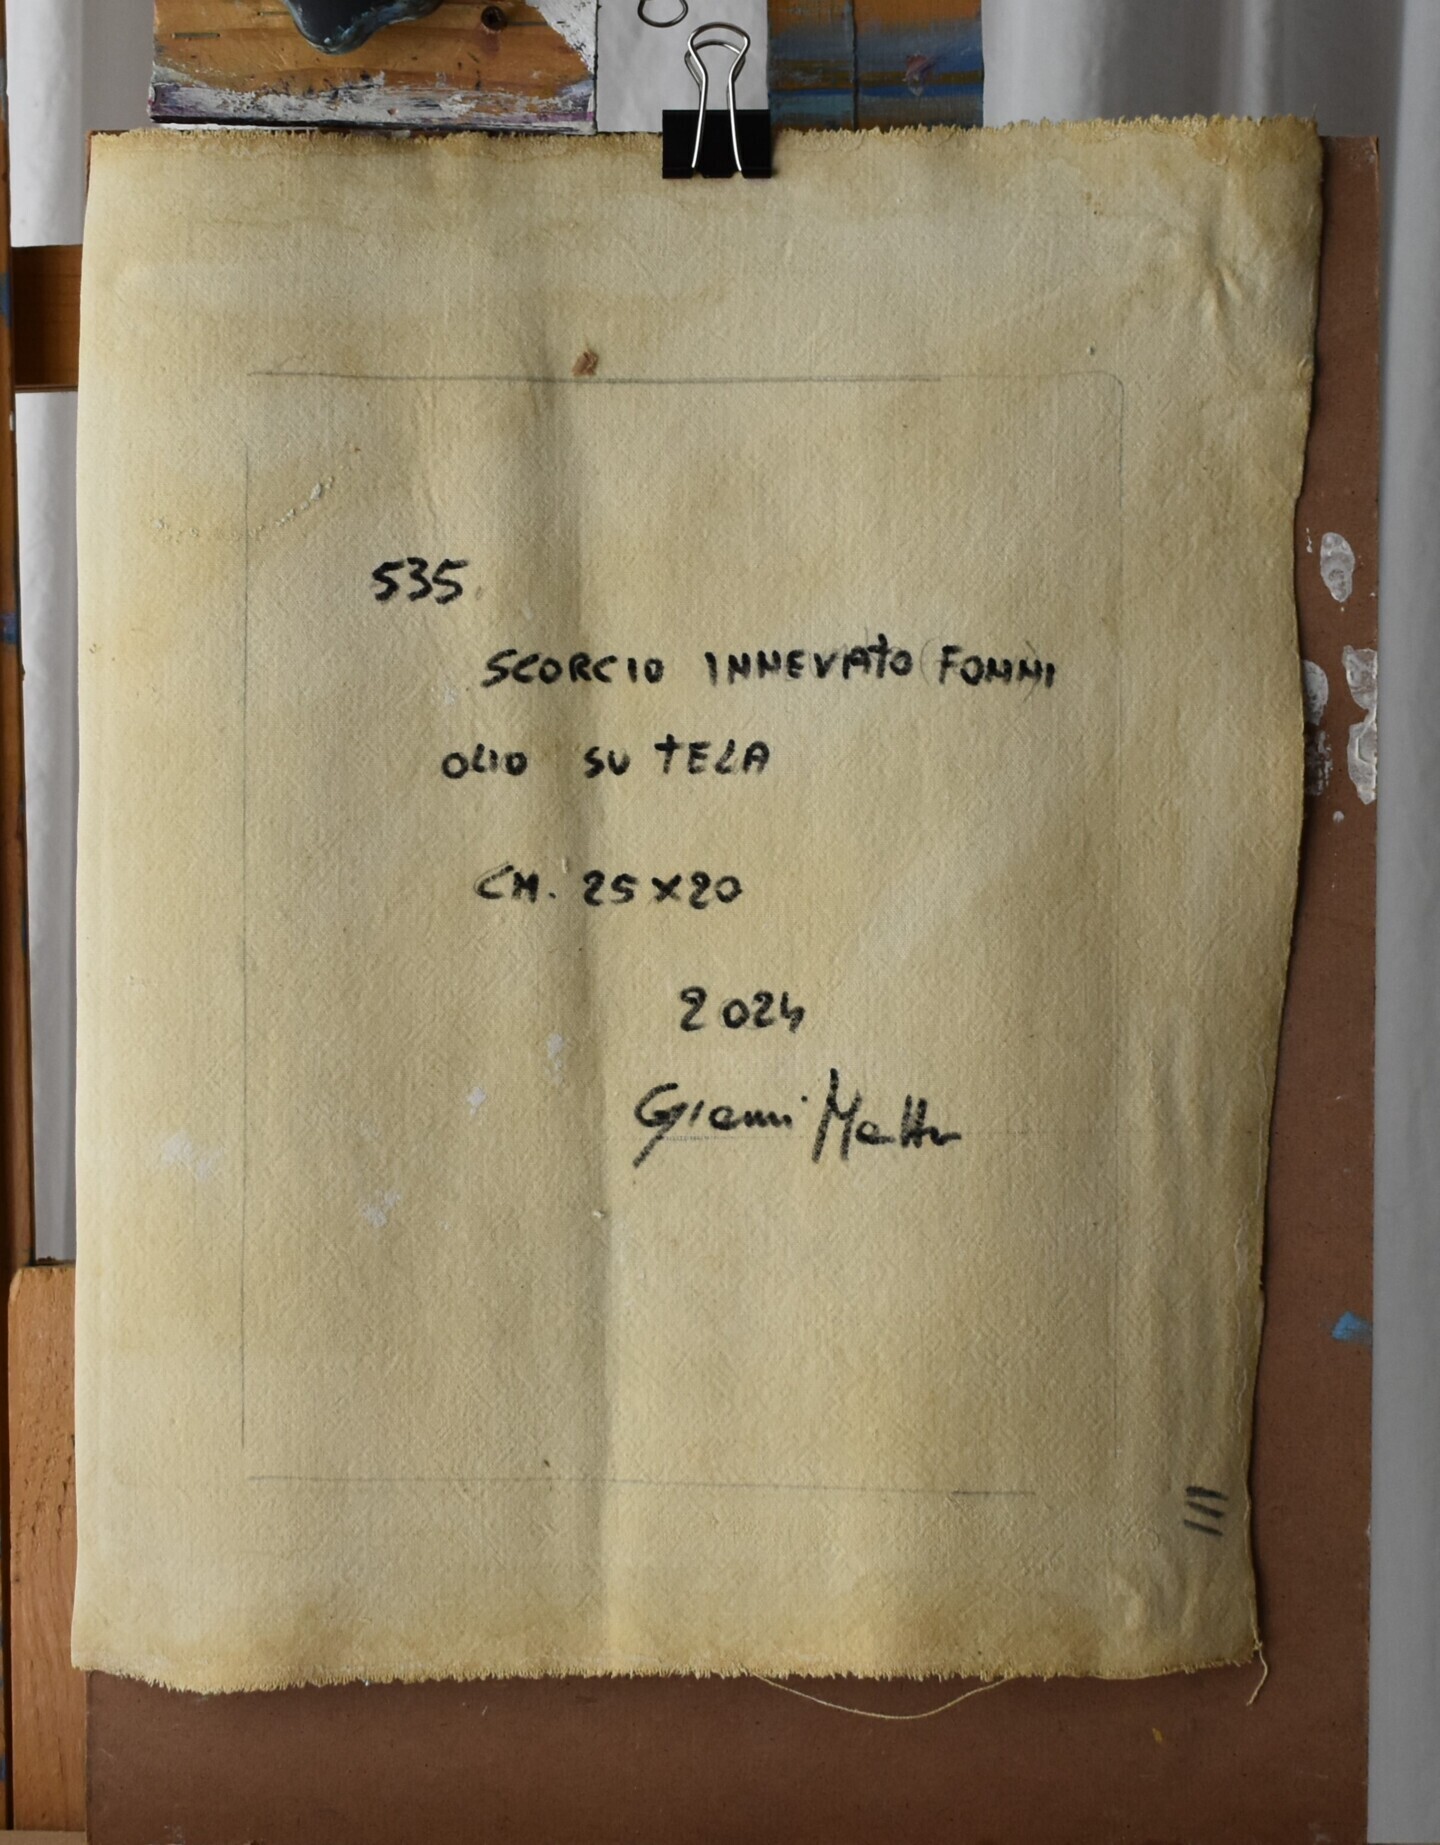 535
SCORCIO INNEVATO (FONNI)
OLIO SU TELA
CM. 25X20
2024
Gianni Mattu
III